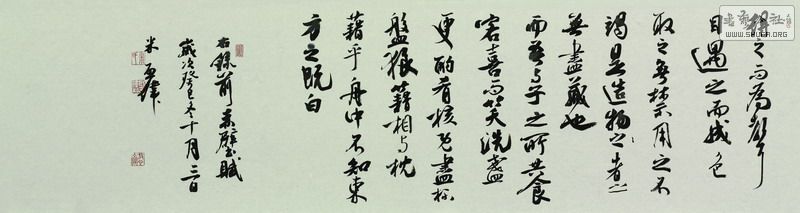 得之而為聲
目遇之而成色
取之無禁用之不
竭是造物之者
無盡藏也
而吾与子之所共食
客喜而笑洗盞
更酌肴核既盡杯
盤狼籍相与枕
藉乎舟中不知東
方之既白
右錄前赤壁賦
歲次癸巳冬十月三日
米